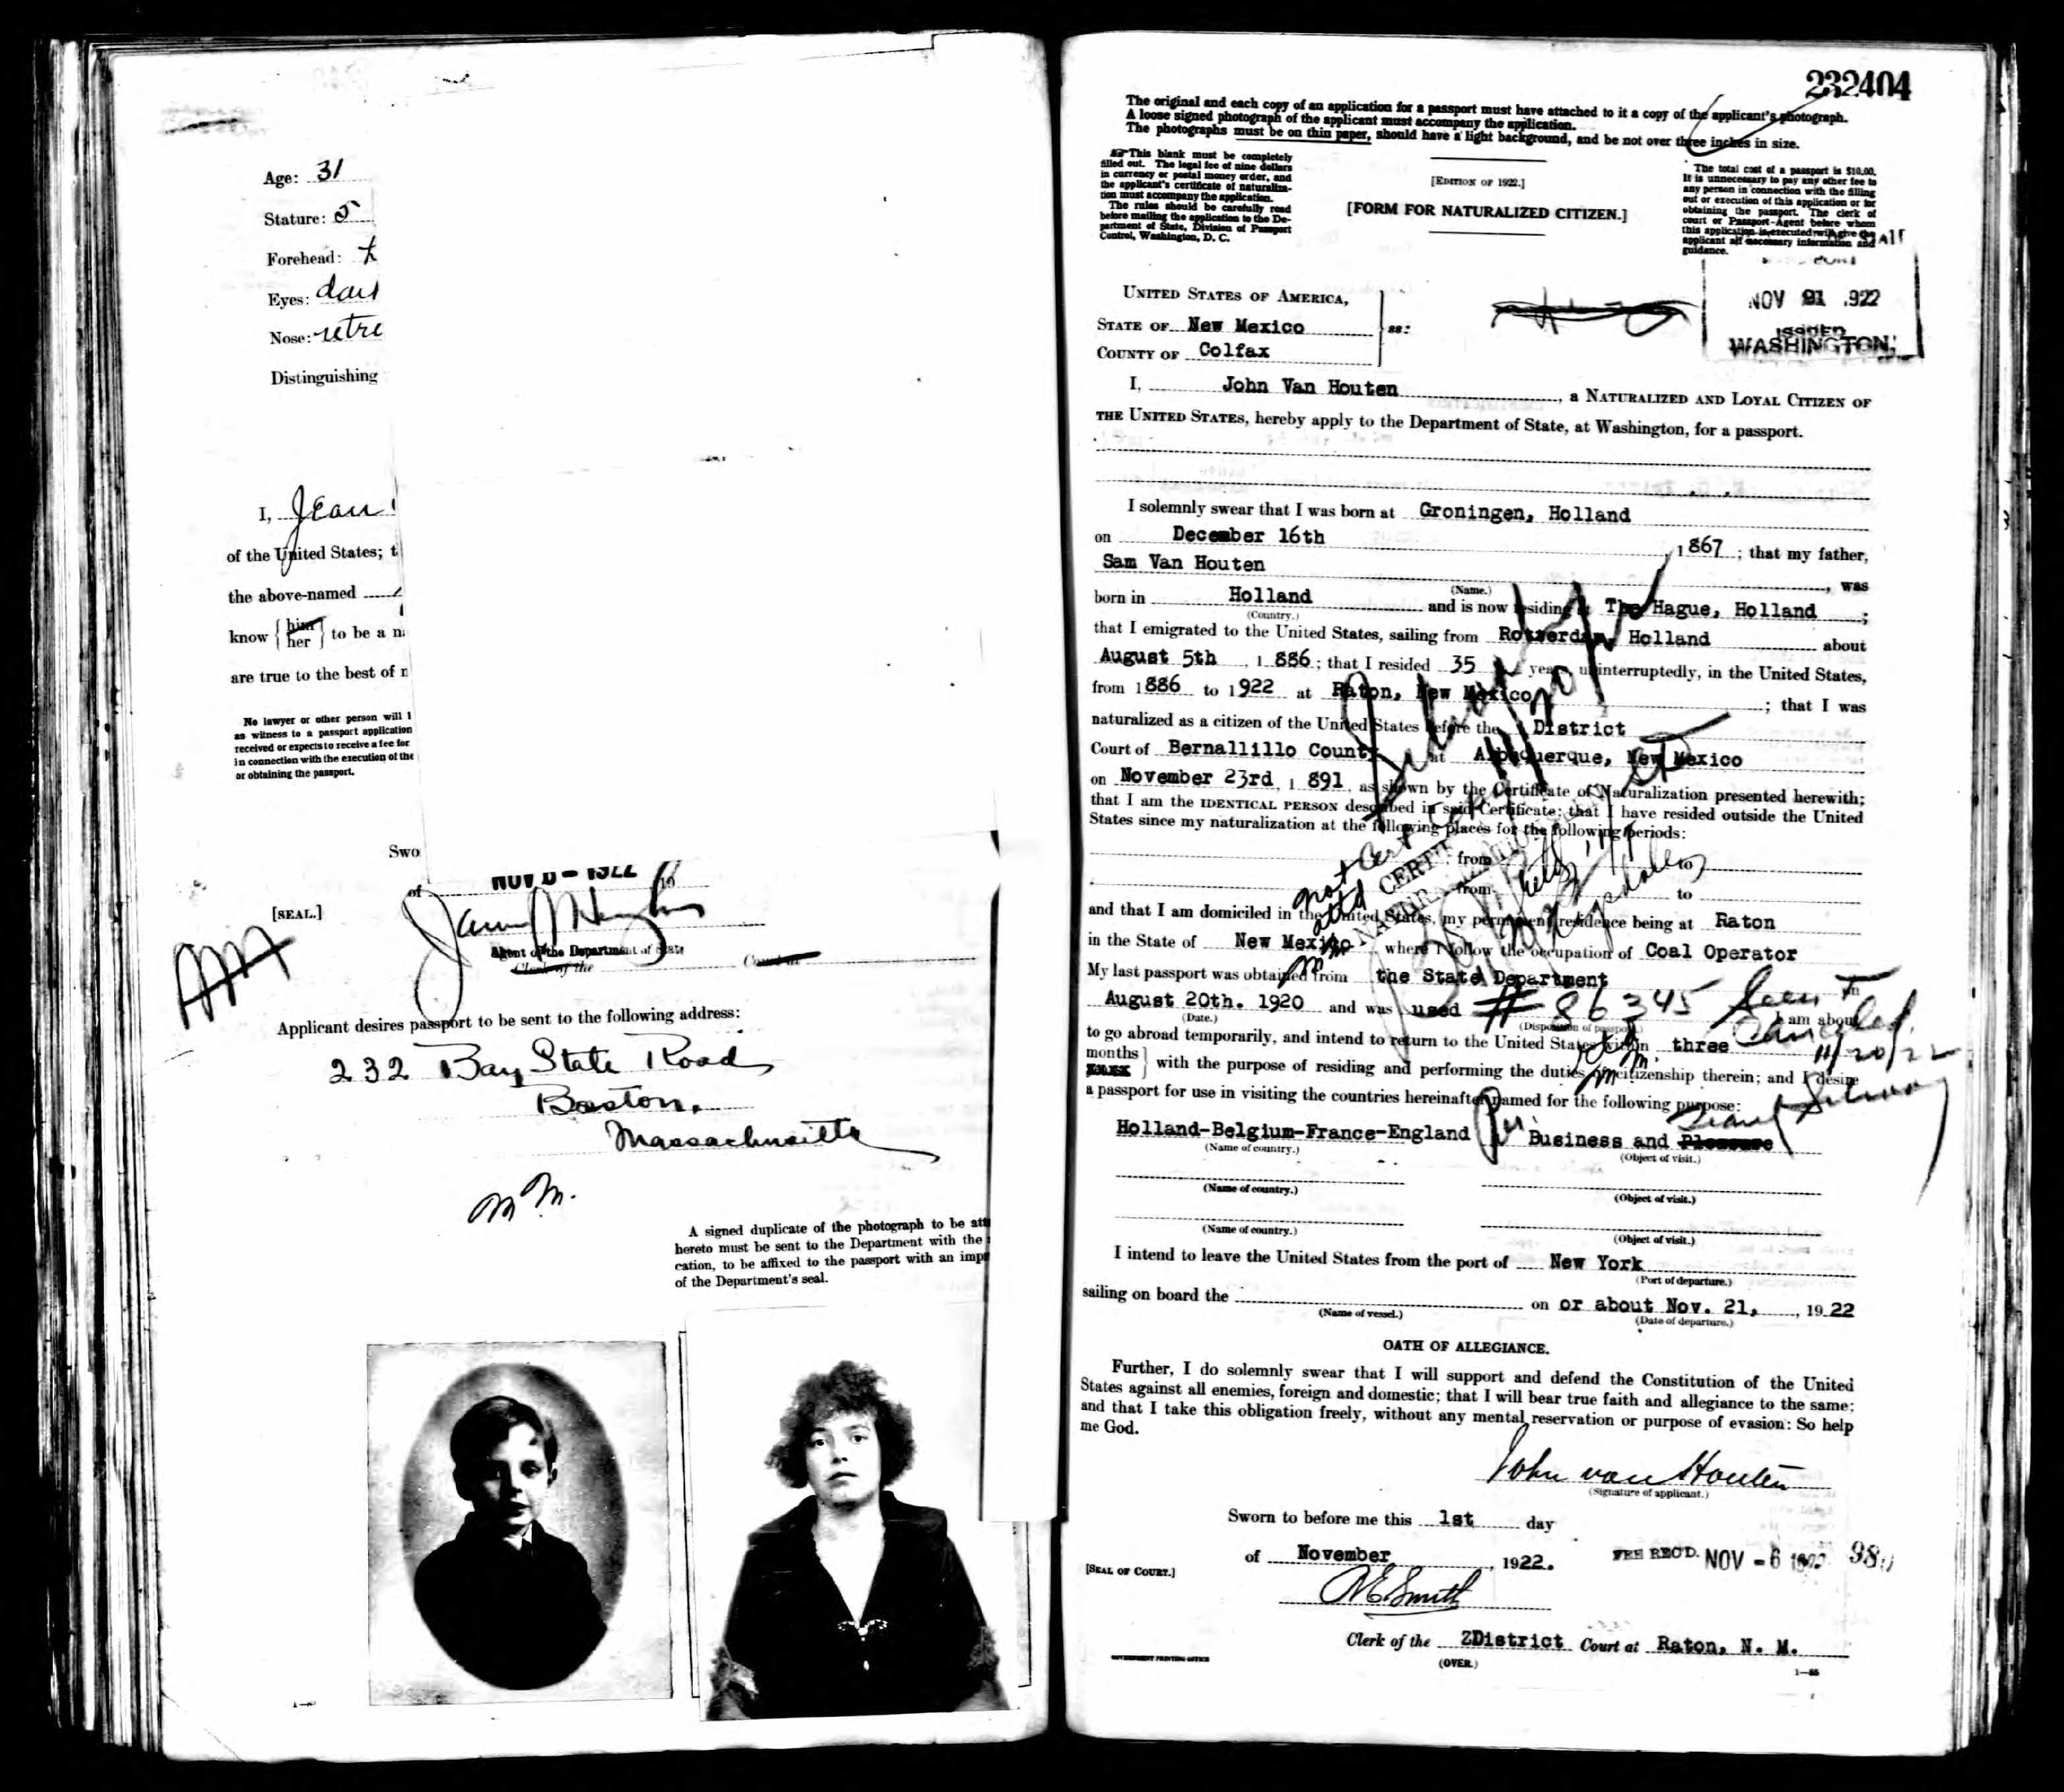 Age: 31
Stature: 5
Forehead:
Eyes: dark
Nose: retre
Distinguishing
I, Jean
of the United States; t
the above-named
know { him her } to be a n
are true to the best of n
No lawyer or other person will
as witness to a passport application
received or expects to receive a fee for
in connection with the execution of the
or obtaining the passport.
Swo
of NOV 6 - 1922 19
[SEAL.]
Agent of the Department of State
Clerk of the Court at
Applicant desires passport to be sent to the following address:
232 Bay State Road
Boston,
Massachusetts
M M.
A signed duplicate of the photograph to be att
hereto must be sent to the Department with the
cation, to be affixed to the passport with an imp
of the Department's seal.
232404
The original and each copy of an application for a passport must have attached to it a copy of the applicant's photograph.
A loose signed photograph of the applicant must accompany the application.
The photographs must be on thin paper, should have a light background, and be not over three inches in size.
This blank must be completely
filled out. The legal fee of nine dollars
in currency or postal money order, and
the applicant's certificate of naturaliza-
tion must accompany the application.
The rules should be carefully read
before mailing the application to the De-
partment of State, Division of Passport
Control, Washington, D. C.
[EDITION OF 1922.]
[FORM FOR NATURALIZED CITIZEN.]
The total cost of a passport is $10.00.
It is unnecessary to pay any other fee to
any person in connection with the filling
out or execution of this application or for
obtaining the passport. The clerk of
court or Passport-Agent before whom
this application is executed will give the
applicant all necessary information and
guidance.
NOV 21 1922
ISSUED
WASHINGTON
UNITED STATES OF AMERICA,
STATE OF New Mexico
COUNTY OF Colfax
ss:
I, John Van Houten, a NATURALIZED AND LOYAL CITIZEN OF
THE UNITED STATES, hereby apply to the Department of State, at Washington, for a passport.
I solemnly swear that I was born at Groningen, Holland
on December 16th, 1867; that my father,
Sam Van Houten, was
(Name.)
born in Holland and is now residing at The Hague, Holland;
(Country.)
that I emigrated to the United States, sailing from Rotterdam, Holland about
August 5th, 1886; that I resided 35 years, uninterruptedly, in the United States,
from 1886 to 1922 at Raton, New Mexico; that I was
naturalized as a citizen of the United States before the District
Court of Bernallillo County at Albuquerque, New Mexico
on November 23rd, 1891, as shown by the Certificate of Naturalization presented herewith;
that I am the IDENTICAL PERSON described in said Certificate; that I have resided outside the United
States since my naturalization at the following places for the following periods:
from to
from to
and that I am domiciled in the United States, my permanent residence being at Raton
in the State of New Mexico where I follow the occupation of Coal Operator
My last passport was obtained from the State Department on
August 20th. 1920 and was used # 86345 I am about
(Date.) (Disposition of passport.)
Cancelled
11/20/22
to go abroad temporarily, and intend to return to the United States within three
months } with the purpose of residing and performing the duties of citizenship therein; and I desire
a passport for use in visiting the countries hereinafter named for the following purpose:
Holland-Belgium-France-England Business and Pleasure
(Name of country.) (Object of visit.)
(Name of country.) (Object of visit.)
(Name of country.) (Object of visit.)
I intend to leave the United States from the port of New York
(Port of departure.)
sailing on board the on or about Nov. 21, 1922
(Name of vessel.) (Date of departure.)
OATH OF ALLEGIANCE.
Further, I do solemnly swear that I will support and defend the Constitution of the United
States against all enemies, foreign and domestic; that I will bear true faith and allegiance to the same;
and that I take this obligation freely, without any mental reservation or purpose of evasion: So help
me God.
John van Houten
(Signature of applicant.)
Sworn to before me this 1st day
of November, 1922.
FEE REC'D. NOV - 6 1922
[SEAL OF COURT.]
Smith
Clerk of the ZDistrict Court at Raton, N. M.
GOVERNMENT PRINTING OFFICE
(OVER.)
1—85